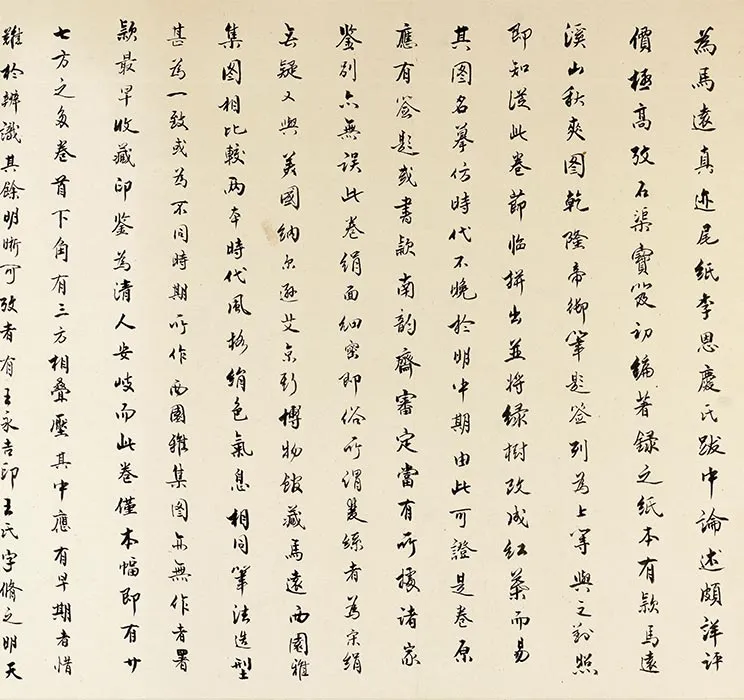 為馬遠真迹尾紙李恩慶氏跋中論述頗詳評
價極高攷石渠寶笈初編著錄之紙本有款馬遠
溪山秋爽图乾隆帝御筆題签列為上等與之對照
即知從此卷節臨拼出並将緑樹改成紅葉而易
其图名摹仿時代不晚於明中期由此可證是卷原
應有签題或書款南韵齋審定當有所據諸家
鉴别亦無误此卷绢面细密即俗所谓雙絲者為宋绢
无疑又與美國纳尔逊艾京斯博物館藏馬遠西園雅
集图相比較兩本時代風格绢色氣息相同筆法造型
甚為一致或為不同時期所作西園雅集图亦無作者署
款最早收藏印鉴為清人安岐而此卷僅本幅即有廿
七方之多卷首下角有三方相叠壓其中應有早期者惜
難於辨識其餘明晰可攷者有王永吉印王氏字脩之明天